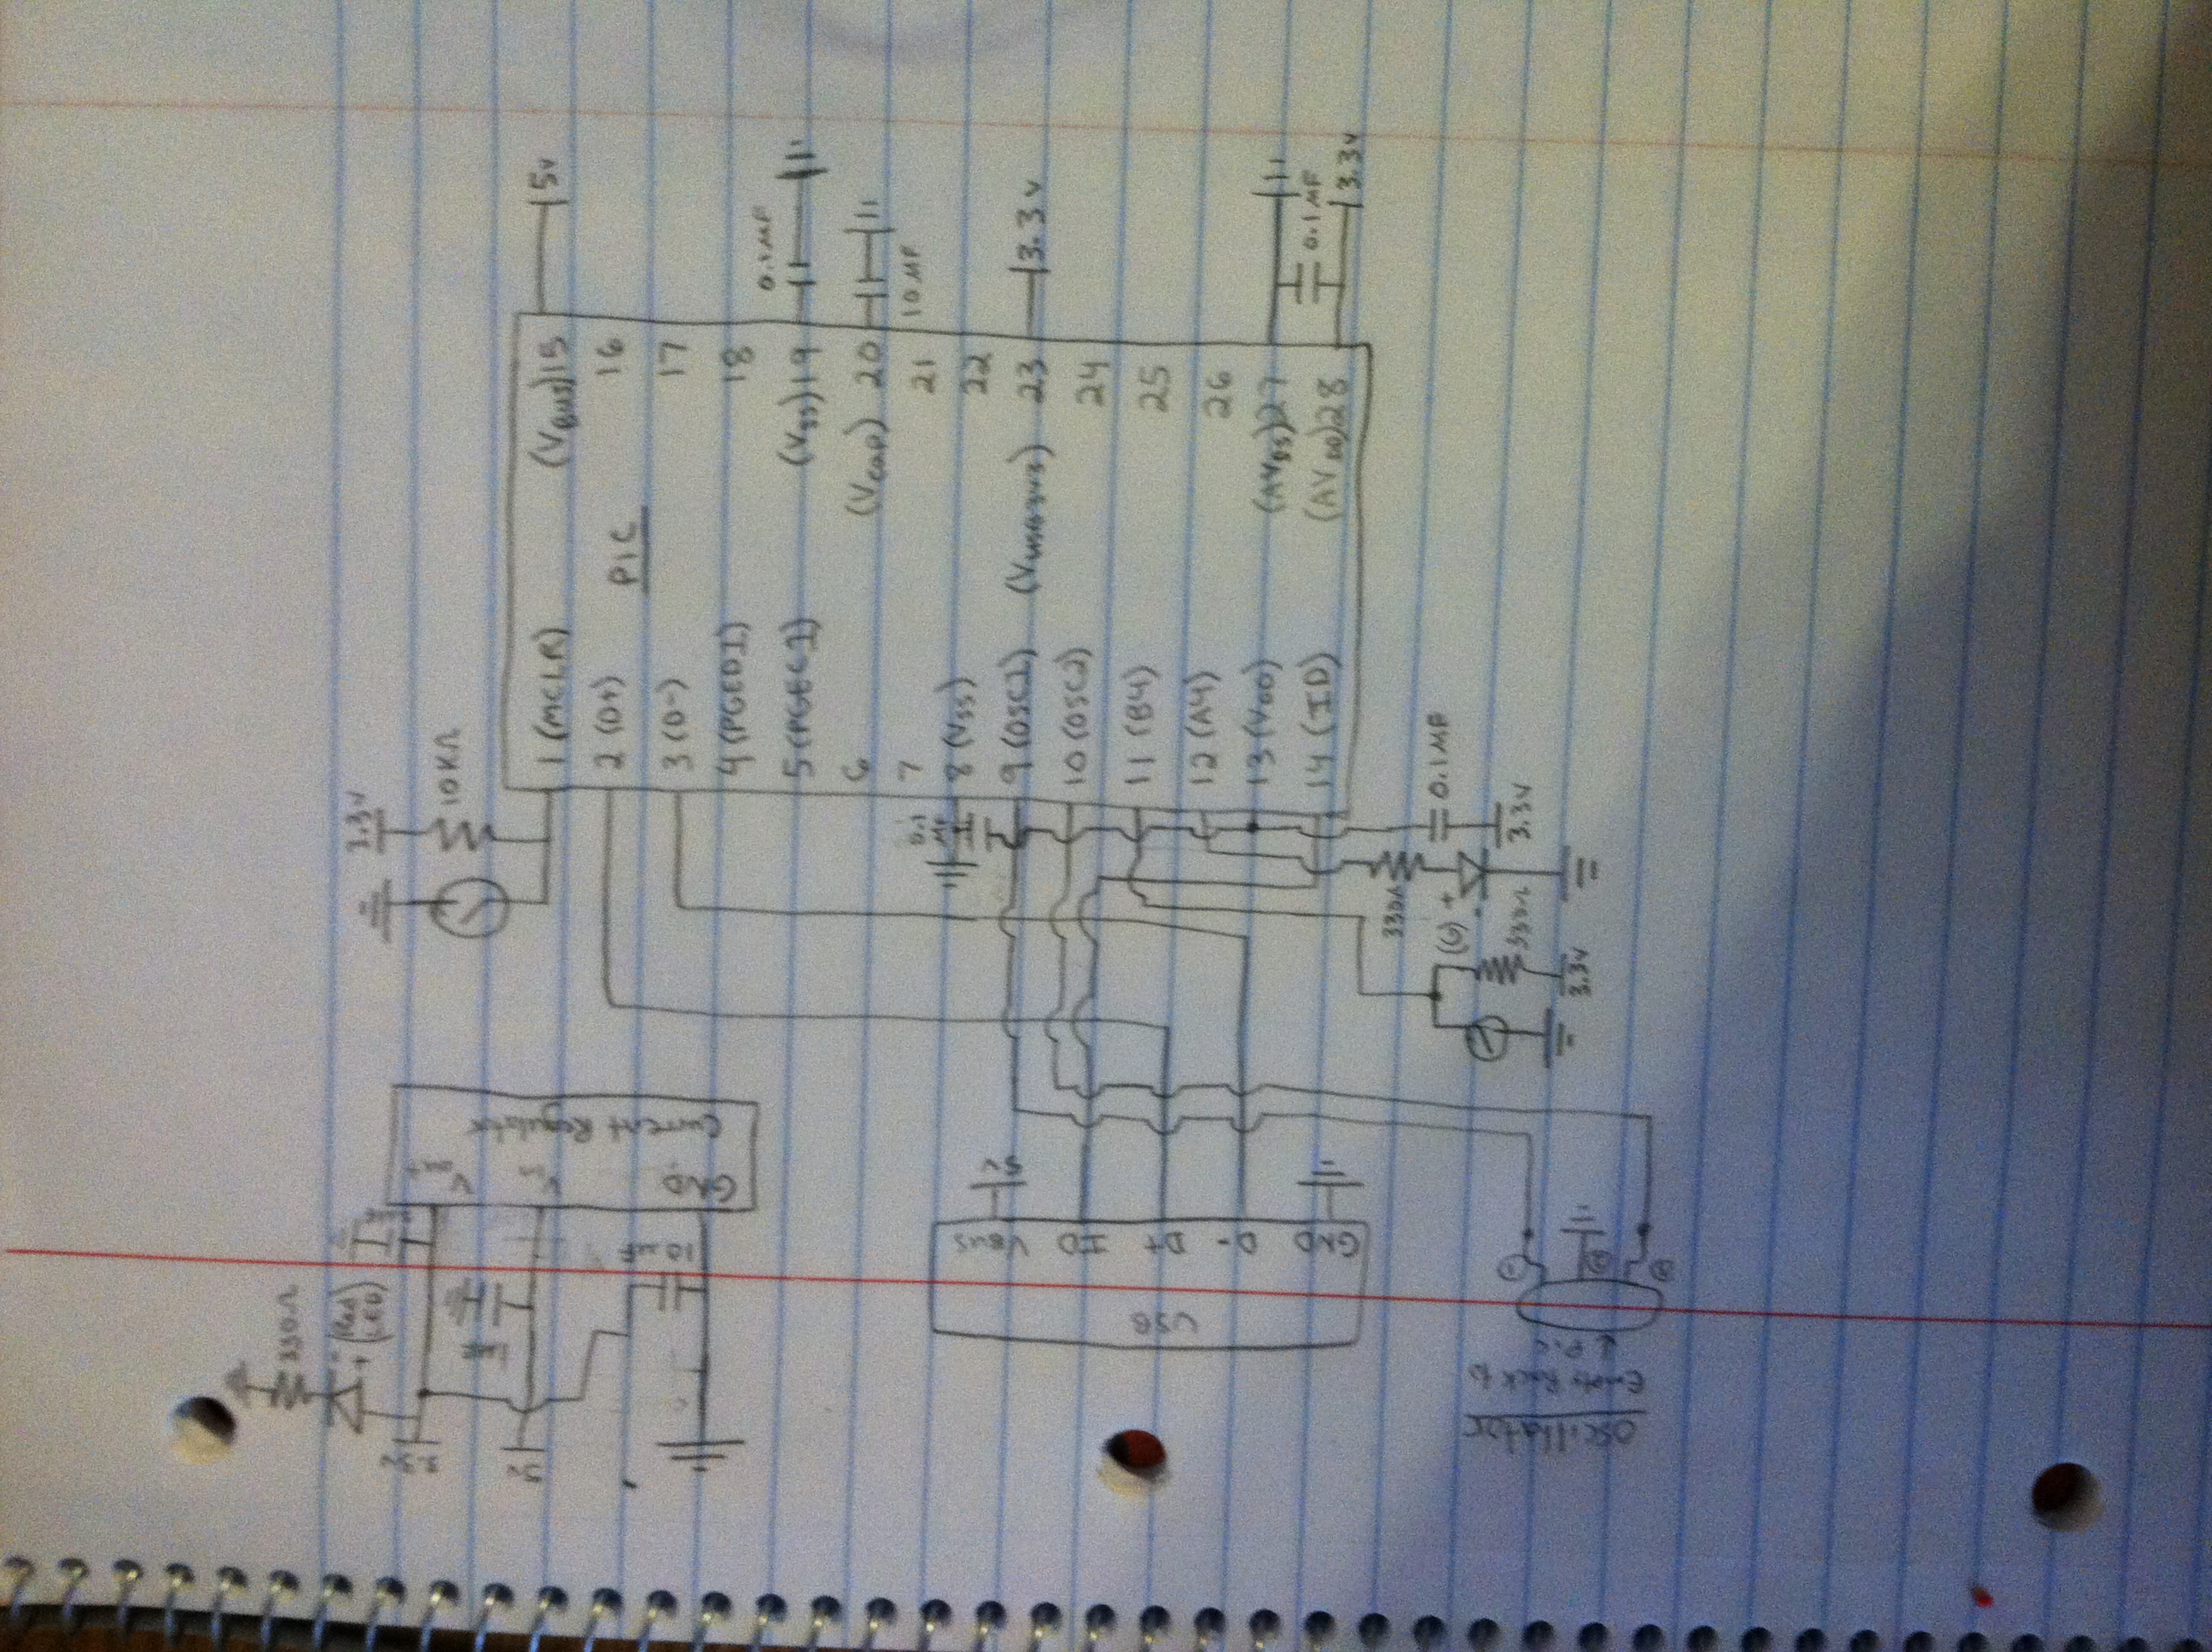 330Ω
- + (Red LED)
5v
1MF
Vout
Vin
GND
Current Regulator
10µF
3.3v
10KΩ
PIC
1 (MCLR)
2 (D+)
3 (D-)
4 (PGED1)
5 (PGEC1)
6
7
8 (Vss)
9 (OSC1)
10 (OSC2)
11 (B4)
12 (A4)
13 (VDD)
14 (ID)
(VBUS)15
16
17
18
(Vss)19
(Vcap) 20
21
22
(VUSB3V3) 23
24
25
26
27
(AVDD)28
5v
0.1MF
10MF
3.3v
0.1MF
3.3v
0.1 MF
USB
VBUS
ID
D+
D-
GND
5v
330Ω
(G) + -
0.1MF
3.3v
330Ω
3.3v
Oscillator
Back to
PIC
1
2
3